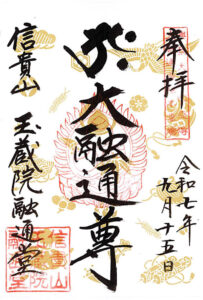 奉拝
令和七年
九月十五日
大融通尊
信貴山
玉蔵院融通堂